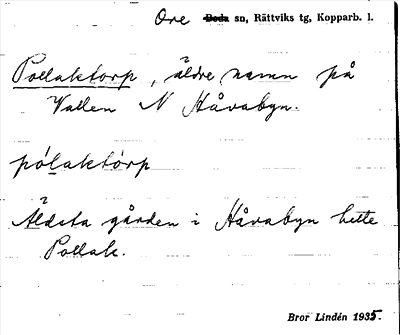 Ore Boda sn, Rättviks tg, Kopparb. l.
Pollaktorp, äldre namn på
Vallen N Håvabyn.
pól̠aktòrp
Äldsta gården i Håvabyn hette
Pollak.
Bror Lindén 1935.